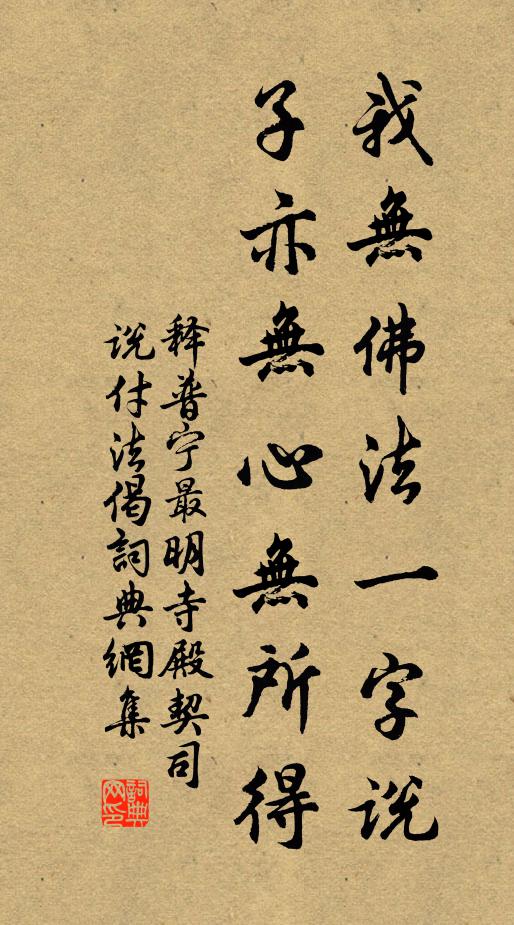 我無佛法一字説
子亦無心無所得
释普宁最明寺殿契司
説付法偈詞典網集
詞典网印